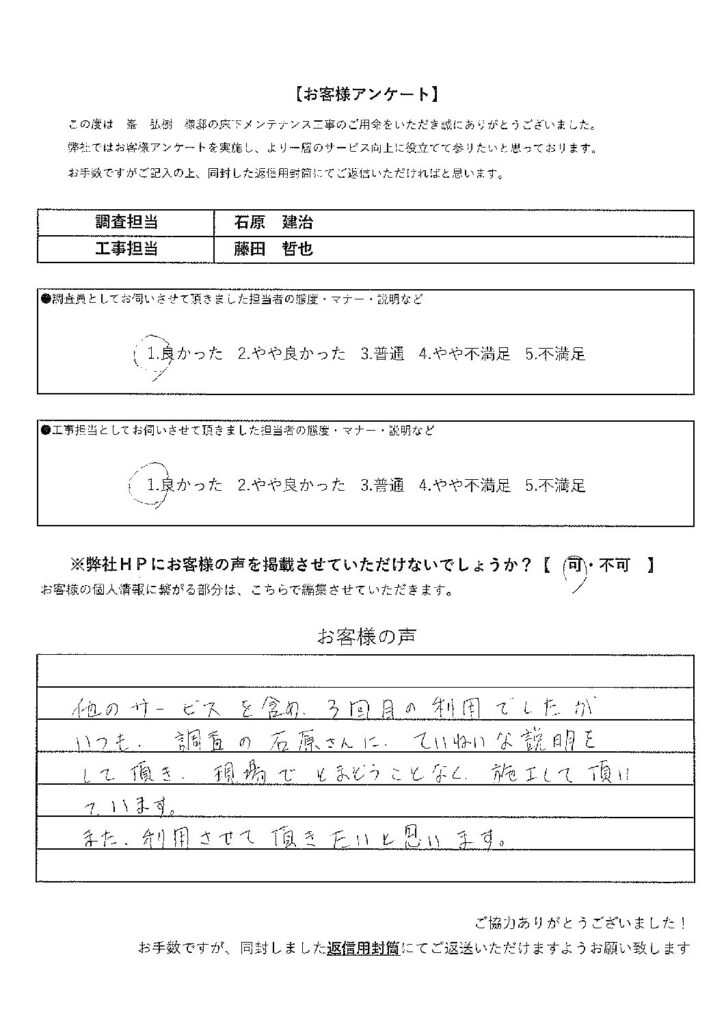 【お客様アンケート】
この度は 峯 弘樹 様邸の床下メンテナンス工事のご用命をいただき誠にありがとうございました。
弊社ではお客様アンケートを実施し、より一層のサービス向上に役立てて参りたいと思っております。
お手数ですがご記入の上、同封した返信用封筒にてご返信いただければと思います。
調査担当 石原 建治
工事担当 藤田 哲也
●調査員としてお伺いさせて頂きました担当者の態度・マナー・説明など
1.良かった 2.やや良かった 3.普通 4.やや不満足 5.不満足
●工事担当としてお伺いさせて頂きました担当者の態度・マナー・説明など
1.良かった 2.やや良かった 3.普通 4.やや不満足 5.不満足
※弊社ＨＰにお客様の声を掲載させていただけないでしょうか？【 可・不可 】
お客様の個人情報に繋がる部分は、こちらで編集させていただきます。
お客様の声
他のサービスを含め、3回目の利用でしたが
いつも、調査の石原さんに、ていねいな説明を
して頂き、現場でとまどうことなく、施工して頂い
ています。
また、利用させて頂きたいと思います。
ご協力ありがとうございました！
お手数ですが、同封しました返信用封筒にてご返送いただけますようお願い致します